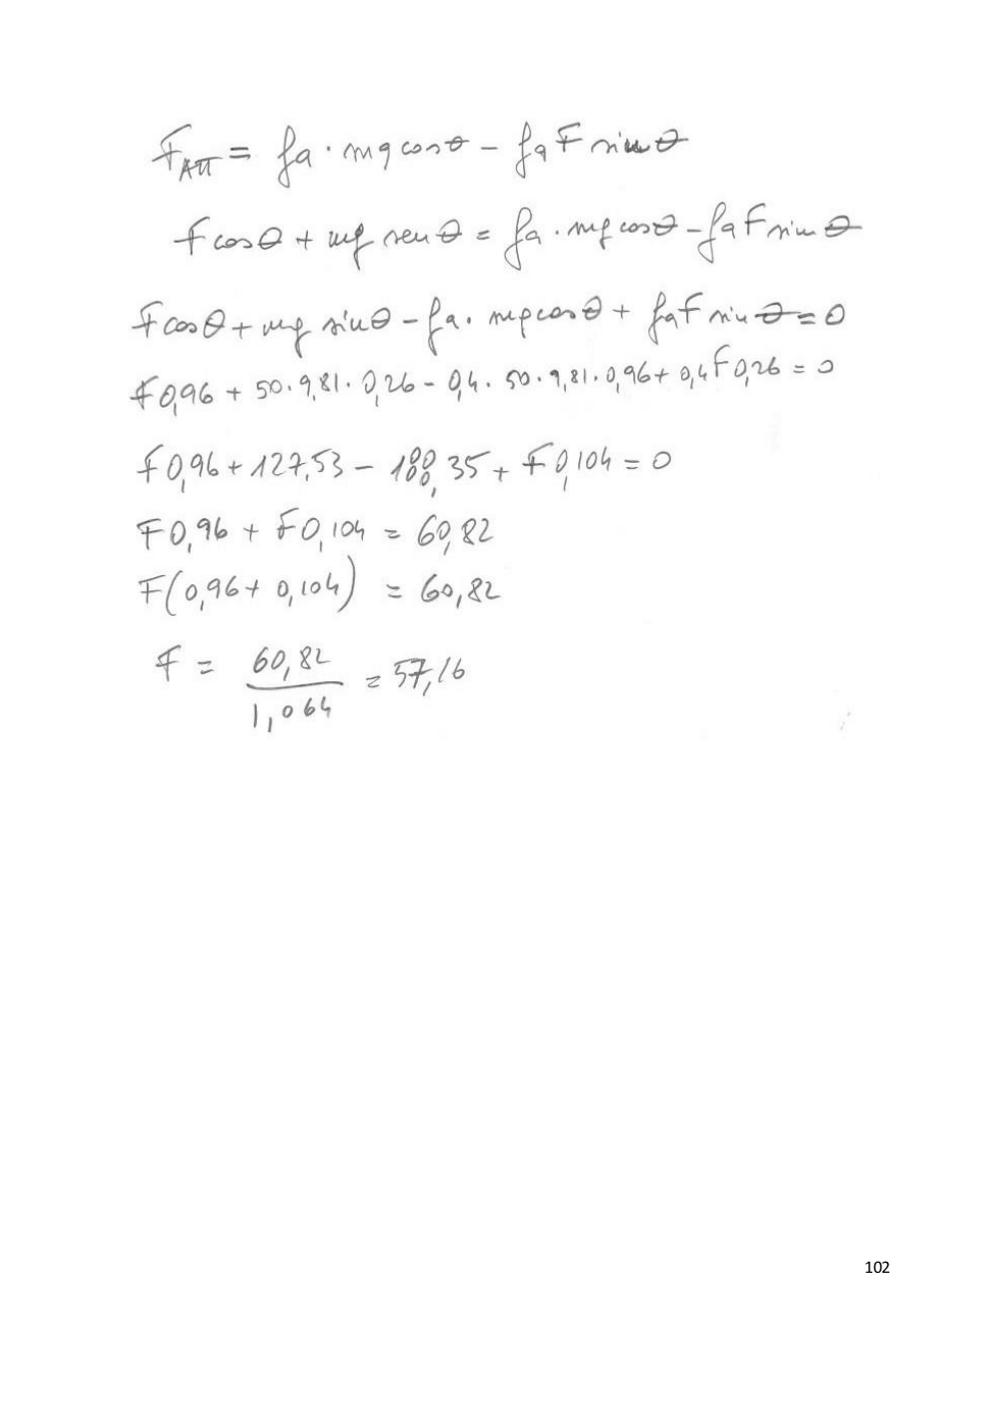 F_ATT = fa · mg cosθ - fa F sinθ
F cosθ + mg senθ = fa · mg cosθ - fa F sinθ
F cosθ + mg sinθ - fa · mg cosθ + fa F sinθ = 0
F 0,96 + 50 · 9,81 · 0,26 - 0,4 · 50 · 9,81 · 0,96 + 0,4 F 0,26 = 0
F 0,96 + 127,53 - ,35 + F 0,104 = 0
F 0,96 + F 0,104 = 60,82
F(0,96 + 0,104) = 60,82
F = 60,82 / 1,064 = 57,16
102